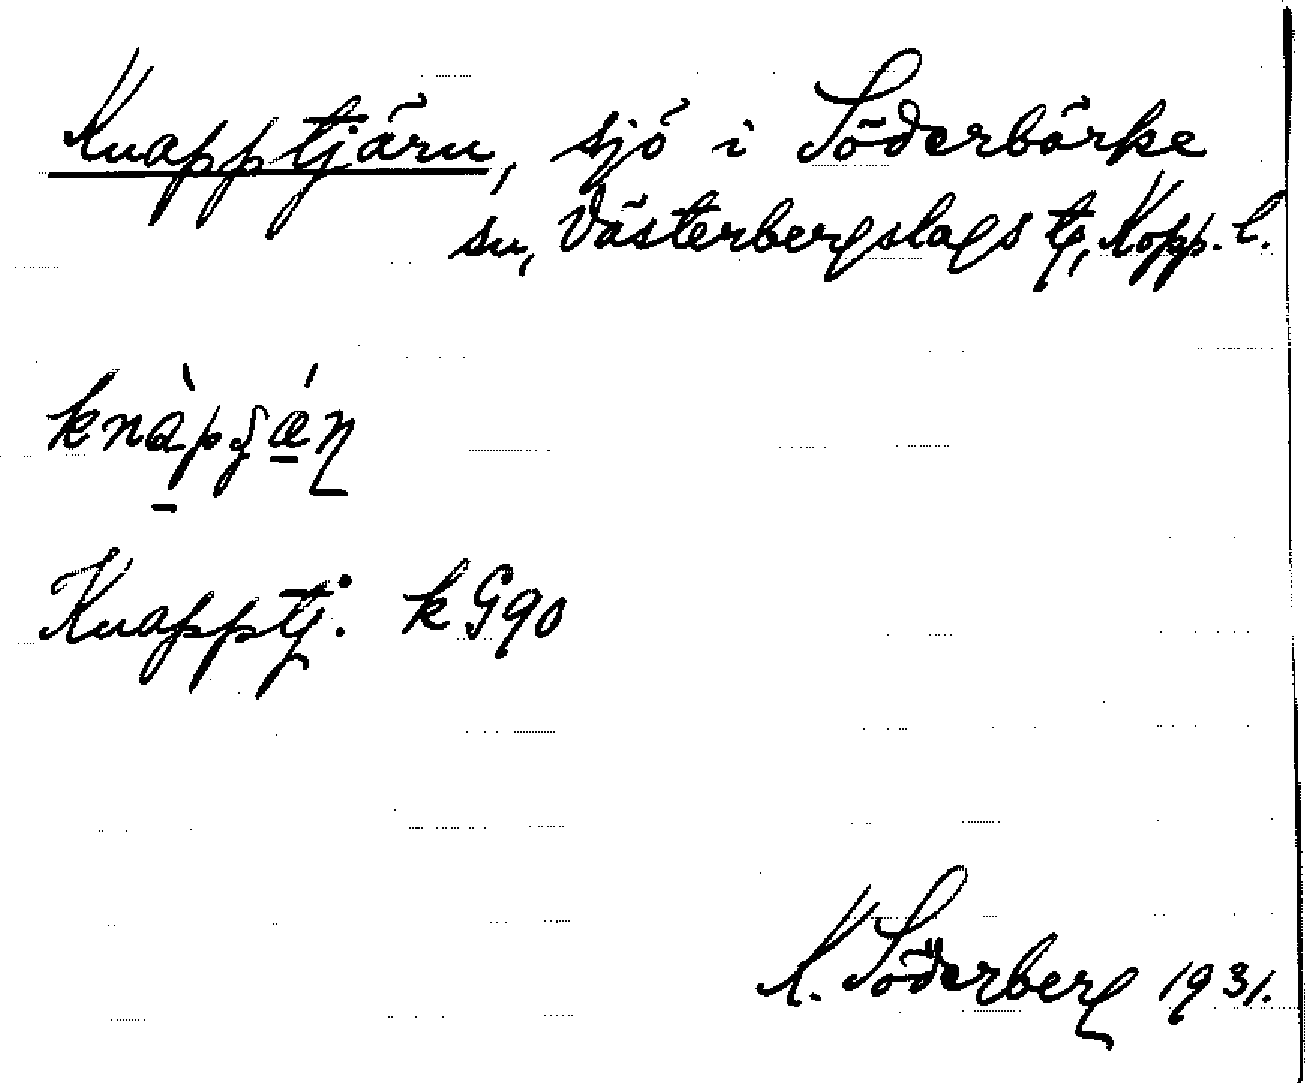 Knapptjärn, sjö i Söderbärke
sn, Västerbergslags tg, Kopp. l.
Knapptj. k G90
K. Söderberg 1931.